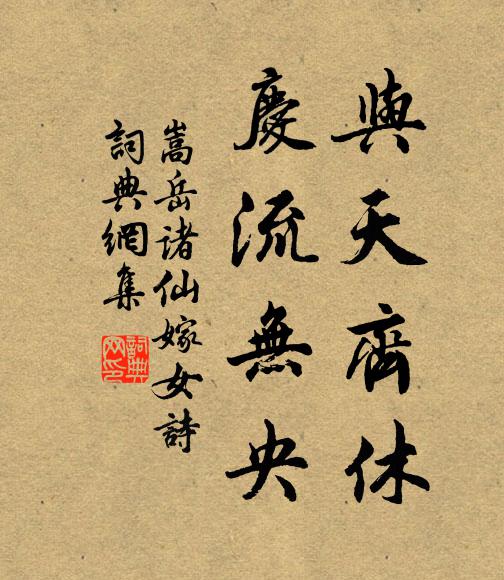 與天齊休
慶流無央
嵩岳諸仙嫁女詩
詞典網集
詞典
网印